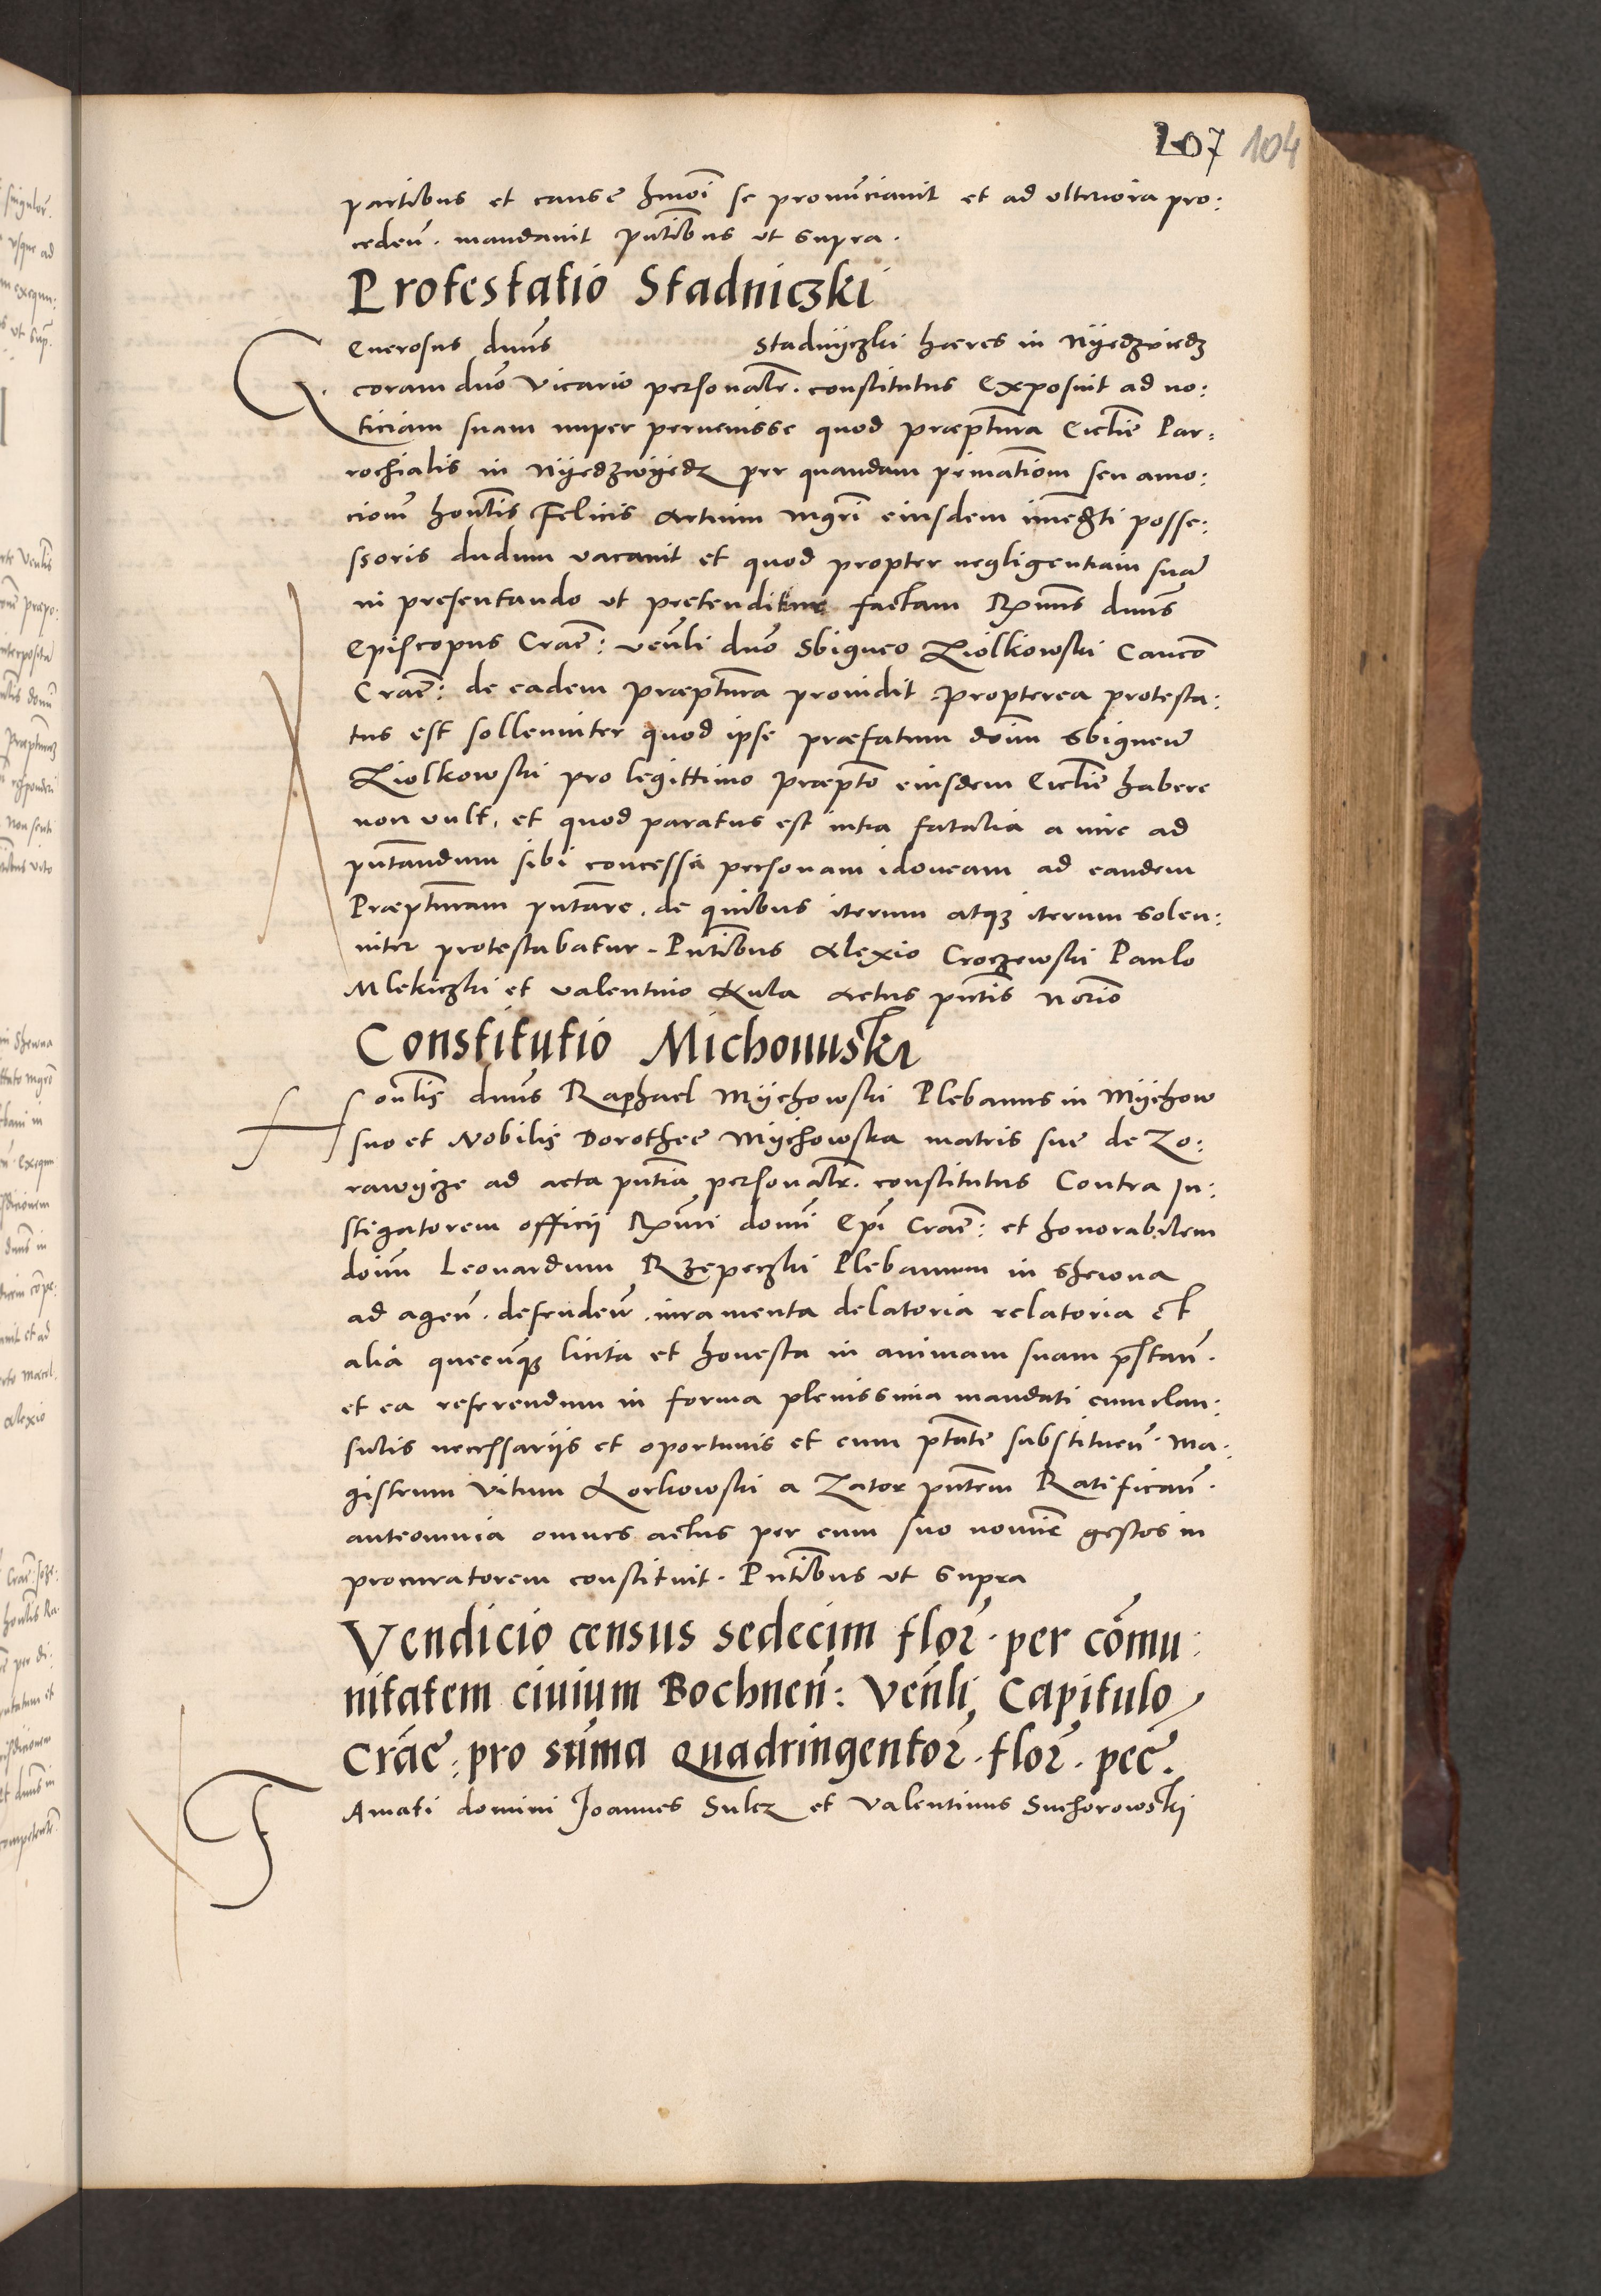 107 104
partibus et cause hmoi se pronunciavit et ad ulteriora pro:
ceden. mandavit pntibus ut supra.
Protestatio Stadniczki
Generosus dnus Stadnyczki hæres in Nyedzviedz
coram dno Vicario personalr. constitutus Exposuit ad no:
ticiam suam nuper pervenisse quod præptura Ecclie Par:
rochialis in Nyedzwyedz per quandam privationem seu amo:
cionem honlis Felicis Artium mgri eiusdem imediati posse:
ssoris dudum vacavit et quod propter negligentiam sua
in presentando ut pretenditur factam Rmus dnus
Episcopus Crac: venli dno Sbigneo Ziolkowski Canco
Crac: de eadem præptura providit propterea protesta:
tus est sollenniter quod ipse præfatum dnum Sbigneu
Ziolkowski pro legittimo præpto eiusdem Ecclie habere
non vult, et quod paratus est intra fatalia a iure ad
pntandum sibi concessa personam idoneam ad eandem
Præpturam pntare, de quibus iterum atqz iterum solen:
niter protestabatur. Pntibus Alexio Croczewski Paulo
Mlekiczki et Valentino Kula Actus pntis Norio
Constitutio Michouuski
Honlis dnus Raphael Mychowski Plebanus in Mychow
suo et Nobilis Dorothee Mychowska matris sue de Zo:
rawycze ad acta pntia personalr. constitutus Contra In:
stigatorem officii Rmi domi Epi Crac: et honorabilem
dominum Leonardum Rzepeczki Plebanum in Shewna
ad agen. defenden. iuramenta delatoria relatoria et
alia quecunqz licita et honesta in animam suam prestan.
et ea referendum in forma plenissima mandati cum clau:
sulis necessariis et oportunis et cum ptate substituen. Ma:
gistrum Vitum Korkowski a Zator pntem Ratifican.
ante omnia omnes actus per eum suo nomine gestos in
procuratorem constituit. Pntibus ut supra
Vendicio census sedecim flor. per comu:
nitatem civium Bochnen: Venli Capitulo
Crac: pro suma Quadringentor. flor. pec.
Famati domini Joannes Sulcz et Valentinus Suchorowski